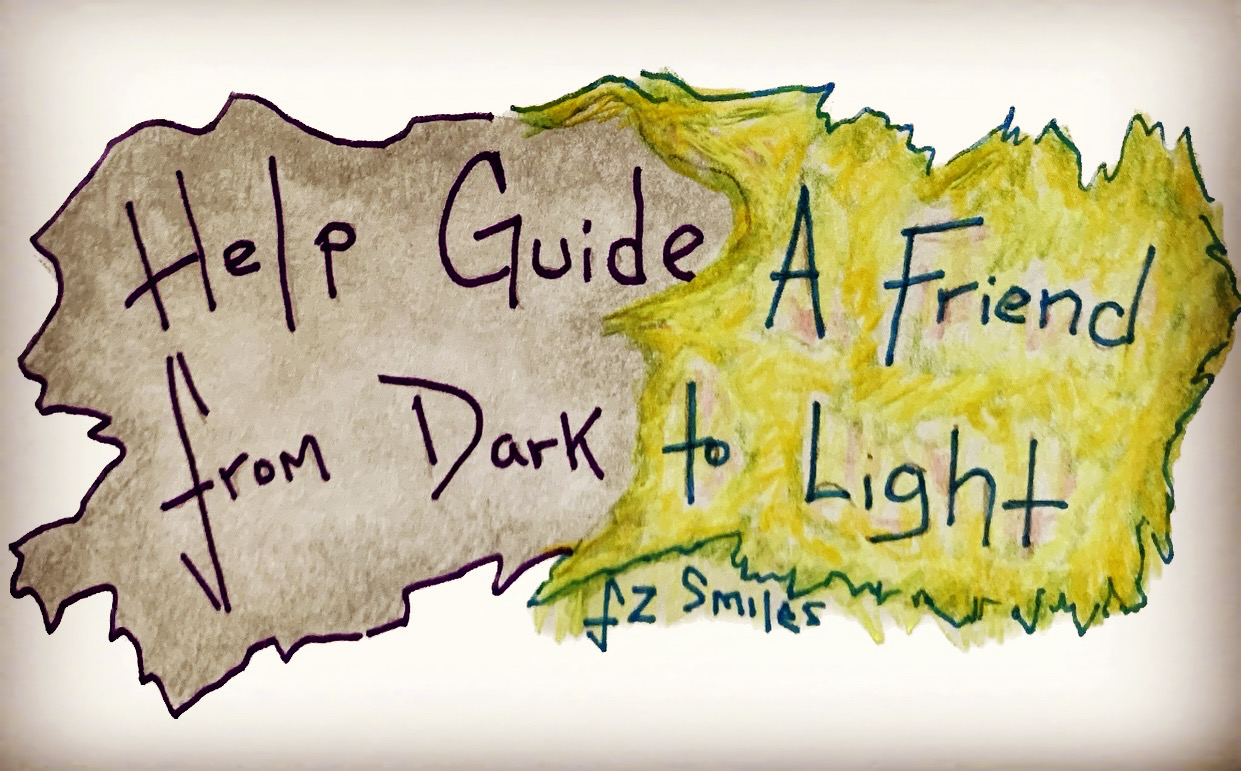 Help Guide A Friend
from Dark to Light
fz Smiles